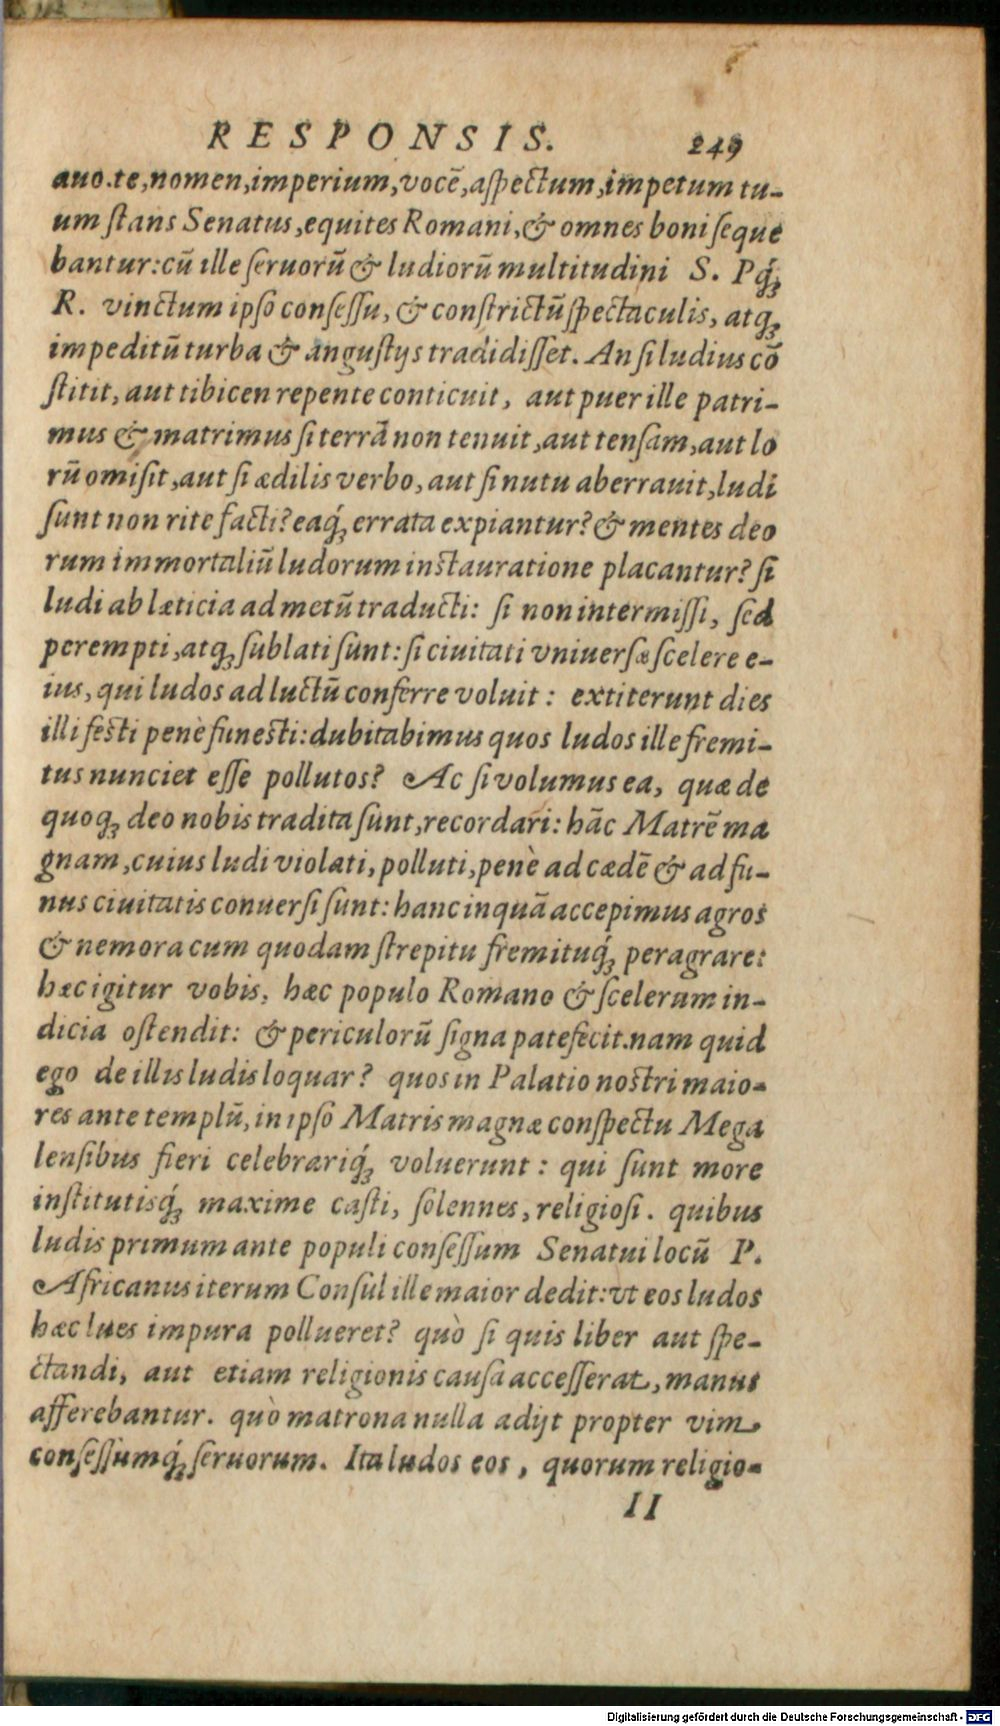 RESPONSIS. 249
auo.te,nomen,imperium,vocē,aſpectum,impetum tu-
um ſtans Senatus,equites Romani,& omnes boni ſeque
bantur:cū ille ſeruorū & ludiorū multitudini S. Pq́ꝫ
R. vinctum ipſo conſeſſu, & conſtrictū ſpectaculis, atqꝫ
impeditū turba & anguſtijs tradidiſſet. An ſi ludius cō
ſtitit, aut tibicen repente conticuit, aut puer ille patri-
mus & matrimus ſi terrā non tenuit,aut tenſam,aut lo
rū omiſit,aut ſi ædilis verbo, aut ſi nutu aberrauit,ludi
ſunt non rite facti? eaq́ꝫ errata expiantur? & mentes deo
rum immortaliū ludorum inſtauratione placantur? ſi
ludi ab læticia ad metū traducti: ſi non intermiſſi, ſed
perempti,atqꝫ ſublati ſunt: ſi ciuitati vniuerſæ ſcelere e-
ius, qui ludos ad luctū conferre voluit : extiterunt dies
illi feſti penè funeſti: dubitabimus quos ludos ille fremi-
tus nunciet eſſe pollutos? Ac ſi volumus ea, quæ de
quoqꝫ deo nobis tradita ſunt,recordari: hāc Matrē ma
gnam,cuius ludi violati, polluti,penè ad cædē & ad fu-
nus ciuitatis conuerſi ſunt: hanc inquā accepimus agros
& nemora cum quodam ſtrepitu fremituq́ꝫ peragrare:
hæc igitur vobis, hæc populo Romano & ſcelerum in-
dicia oſtendit: & periculorū ſigna patefecit.nam quid
ego de illis ludis loquar? quos in Palatio noſtri maio-
res ante templū, in ipſo Matris magnæ conſpectu Mega
lenſibus fieri celebrariq́ꝫ voluerunt : qui ſunt more
inſtitutisq́ꝫ maxime caſti, ſolennes, religioſi. quibus
ludis primum ante populi conſeſſum Senatui locū P.
Africanus iterum Conſul ille maior dedit: vt eos ludos
hæc lues impura pollueret? quò ſi quis liber aut ſpe-
ctandi, aut etiam religionis cauſa acceſſerat, manus
afferebantur. quò matrona nulla adijt propter vim
conſeſſumq́ꝫ ſeruorum. Ita ludos eos, quorum religio-
II
Digitalisierung gefördert durch die Deutsche Forschungsgemeinschaft - DFG